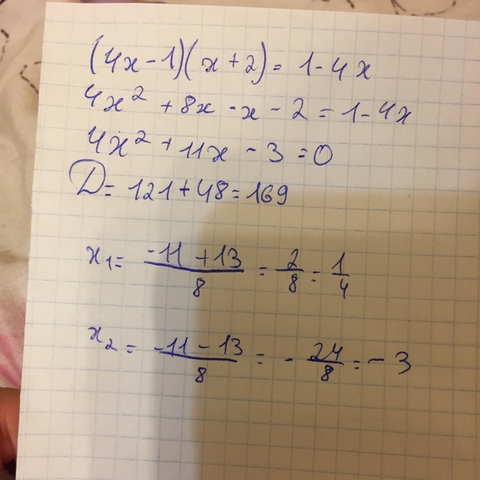 (4x-1)(x+2)=1-4x
4x²+8x-x-2=1-4x
4x²+11x-3=0
D=121+48=169
x₁=\frac{-11+13}{8}=\frac{2}{8}=\frac{1}{4}
x₂=\frac{-11-13}{8}=-\frac{24}{8}=-3